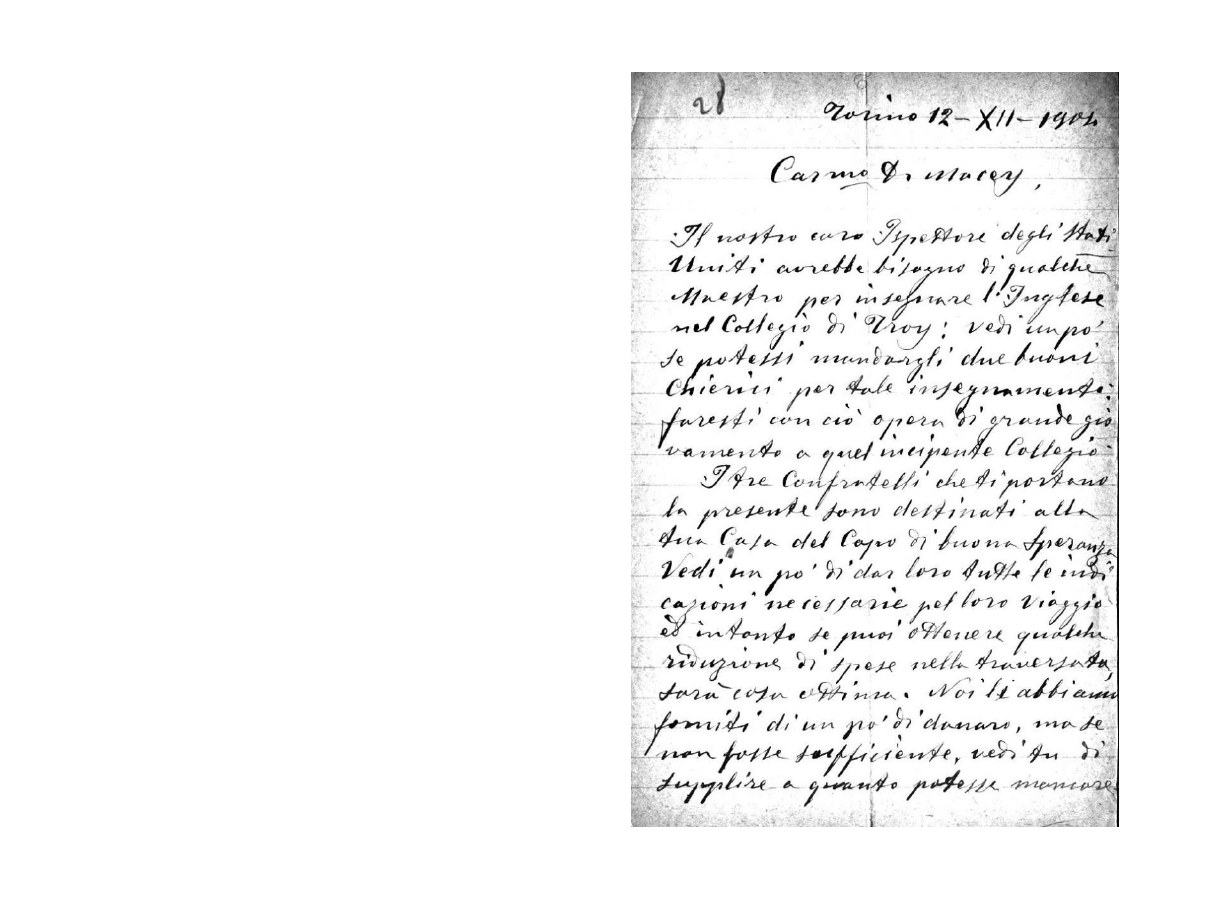 28
Torino 12-XII-1904
Carmo D. Macey,
Il nostro caro Ispettore degli Stati
Uniti avrebbe bisogno di qualche
Maestro per insegnare l'Inglese
nel Collegio di Troy: vedi un po'
se potessi mandargli due buoni
Chierici per tale insegnamento:
faresti con ciò opera di grande gio
vamento a quel incipente Collegio
I tre Confratelli che ti portano
la presente sono destinati alla
tua Casa del Capo di buona Speranza
Vedi un po' di dar loro tutte le indi
cazioni necessarie pel loro viaggio
ed intanto se puoi ottenere qualche
riduzione di spese nella traversata,
sarà cosa ottima. Noi li abbiamo
forniti di un po' di danaro, ma se
non fosse sufficiente, vedi tu di
supplire a quanto potesse mancare